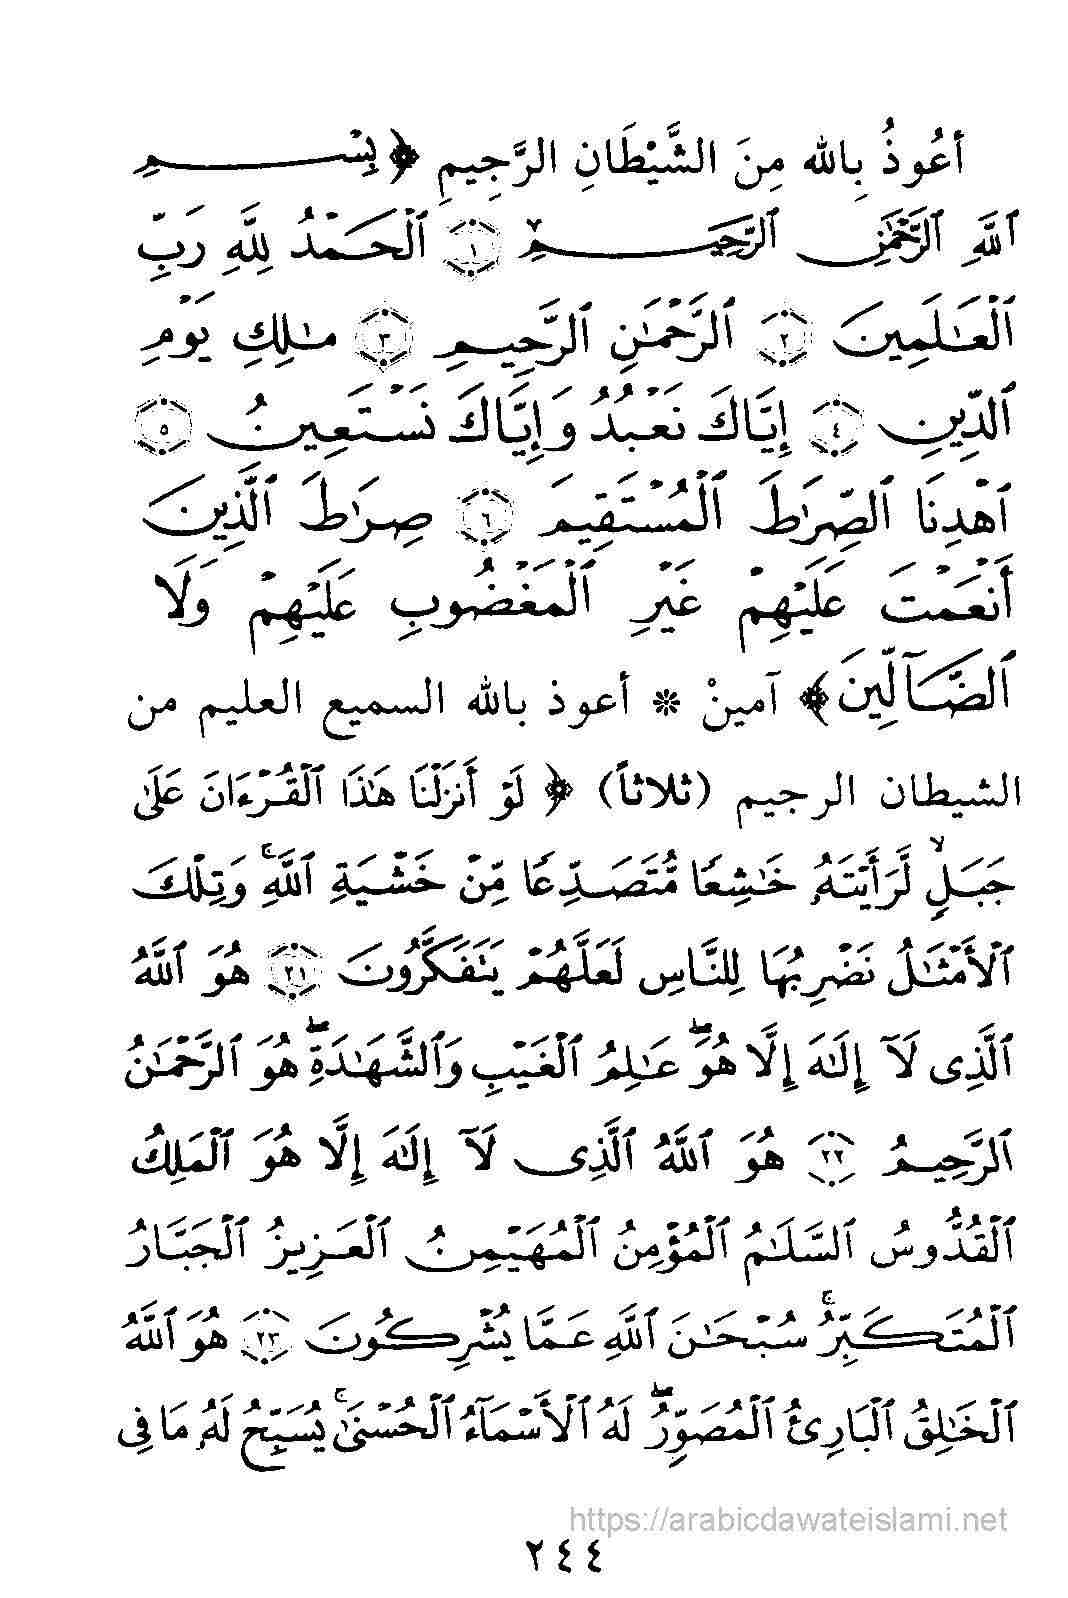 أعُوذُ بِالله مِنَ الشَّيْطَانِ الرَّجِيمِ ﴿ بِسْمِ
ٱللَّهِ ٱلرَّحْمَٰنِ ٱلرَّحِيمِ ١ ٱلْحَمْدُ لِلَّهِ رَبِّ
ٱلْعَٰلَمِينَ ٢ ٱلرَّحْمَٰنِ ٱلرَّحِيمِ ٣ مَٰلِكِ يَوْمِ
ٱلدِّينِ ٤ إِيَّاكَ نَعْبُدُ وَإِيَّاكَ نَسْتَعِينُ ٥
ٱهْدِنَا ٱلصِّرَٰطَ ٱلْمُسْتَقِيمَ ٦ صِرَٰطَ ٱلَّذِينَ
أَنْعَمْتَ عَلَيْهِمْ غَيْرِ ٱلْمَغْضُوبِ عَلَيْهِمْ وَلَا
ٱلضَّآلِّينَ﴾ آمينْ * أعوذ بالله السميع العليم من
الشيطان الرجيم (ثلاثاً) ﴿ لَوْ أَنزَلْنَا هَٰذَا ٱلْقُرْءَانَ عَلَىٰ
جَبَلٍۢ لَّرَأَيْتَهُۥ خَٰشِعًا مُّتَصَدِّعًا مِّنْ خَشْيَةِ ٱللَّهِۚ وَتِلْكَ
ٱلْأَمْثَٰلُ نَضْرِبُهَا لِلنَّاسِ لَعَلَّهُمْ يَتَفَكَّرُونَ ٢١ هُوَ ٱللَّهُ
ٱلَّذِى لَآ إِلَٰهَ إِلَّا هُوَۖ عَٰلِمُ ٱلْغَيْبِ وَٱلشَّهَٰدَةِۖ هُوَ ٱلرَّحْمَٰنُ
ٱلرَّحِيمُ ٢٢ هُوَ ٱللَّهُ ٱلَّذِى لَآ إِلَٰهَ إِلَّا هُوَ ٱلْمَلِكُ
ٱلْقُدُّوسُ ٱلسَّلَٰمُ ٱلْمُؤْمِنُ ٱلْمُهَيْمِنُ ٱلْعَزِيزُ ٱلْجَبَّارُ
ٱلْمُتَكَبِّرُۚ سُبْحَٰنَ ٱللَّهِ عَمَّا يُشْرِكُونَ ٢٣ هُوَ ٱللَّهُ
ٱلْخَٰلِقُ ٱلْبَارِئُ ٱلْمُصَوِّرُۖ لَهُ ٱلْأَسْمَآءُ ٱلْحُسْنَىٰۚ يُسَبِّحُ لَهُۥ مَا فِى
https://arabicdawateislami.net
٢٤٤